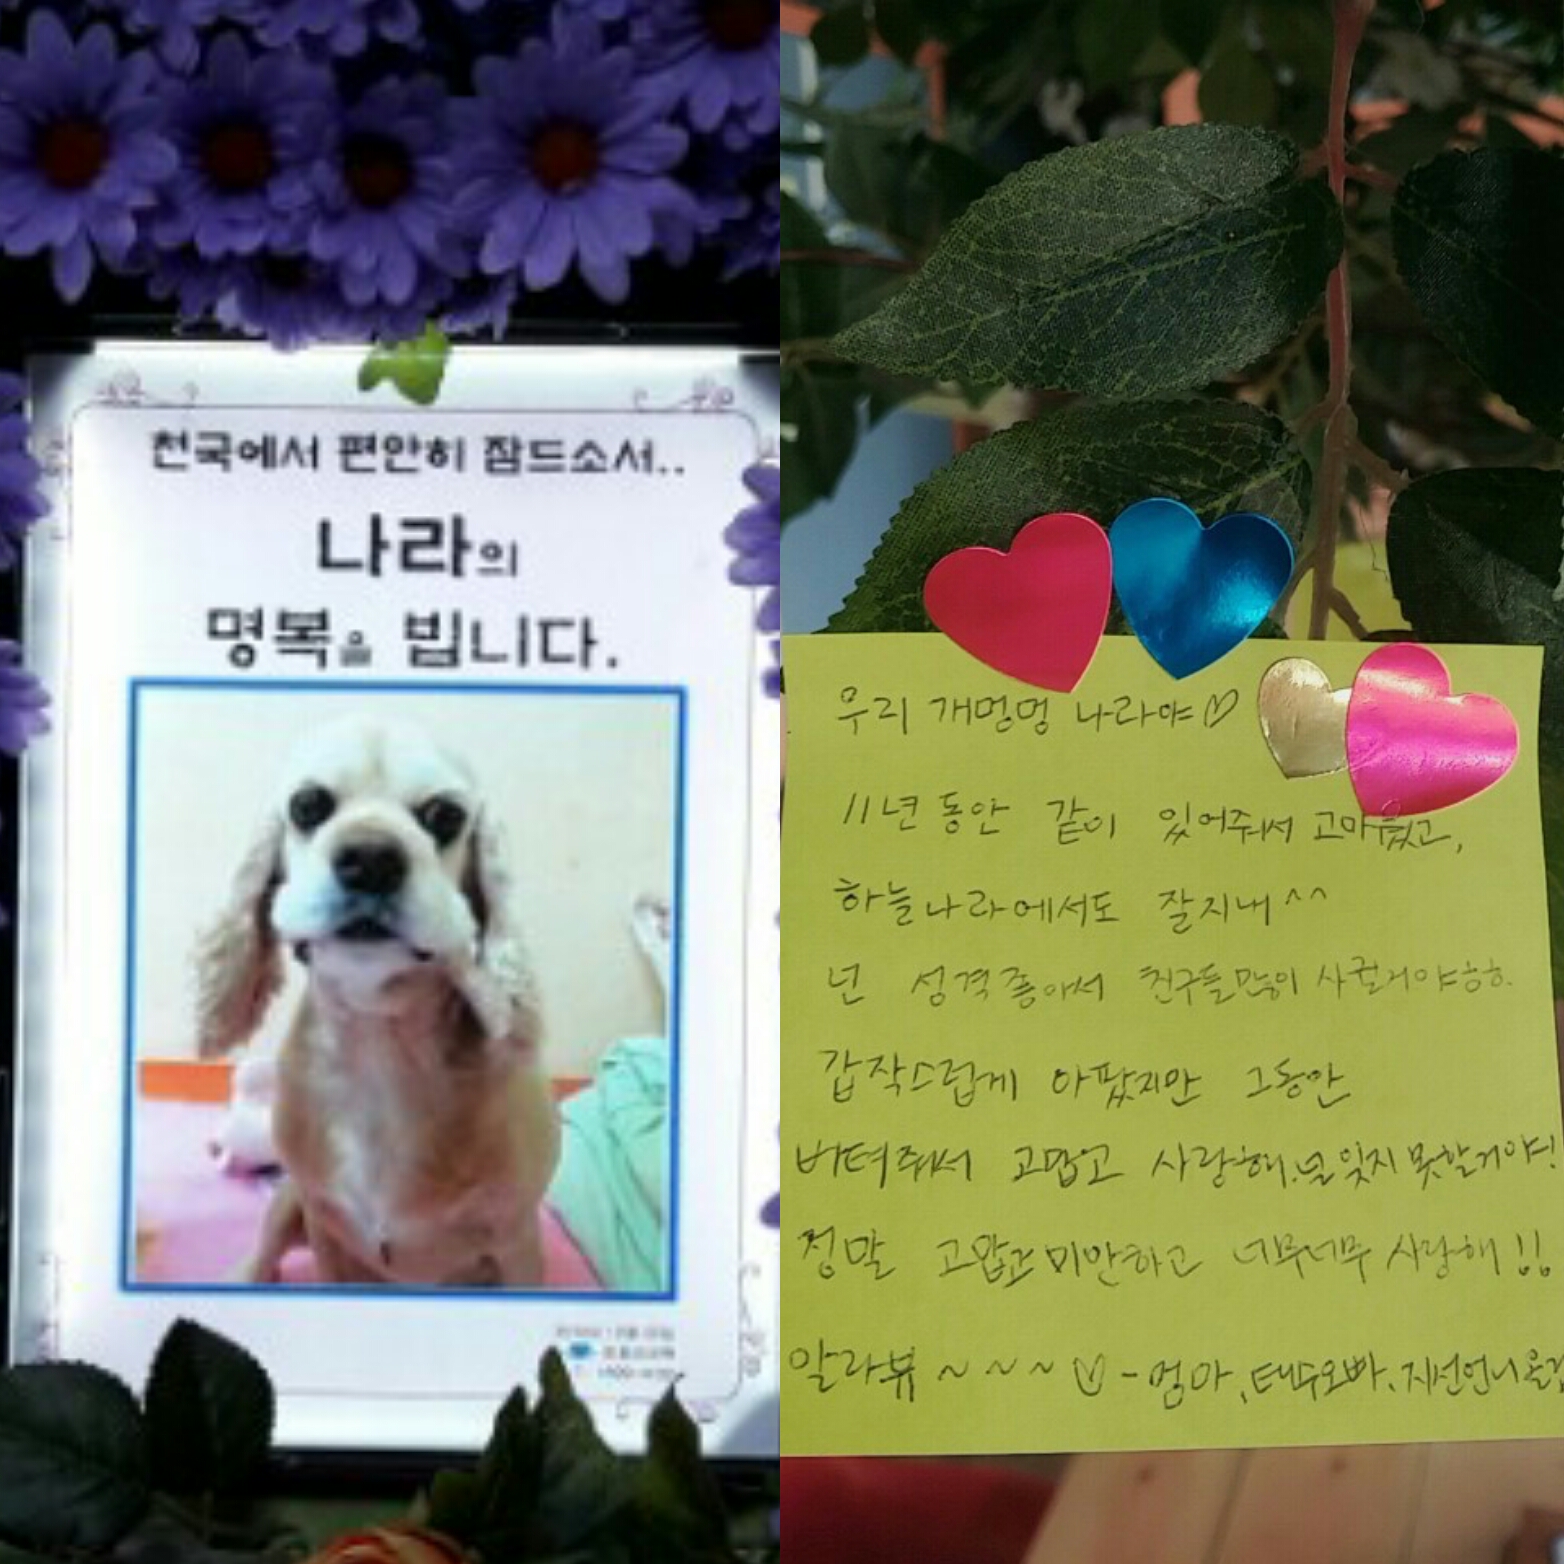 천국에서 편안히 잠드소서..
나라의
명복을 빕니다.
우리 개멍멍 나라야♡
11년 동안 같이 있어줘서 고마웠고,
하늘나라에서도 잘지내^^
넌 성격좋아서 친구들많이 사귈거야ㅎㅎ.
갑작스럽게 아팠지만 그동안
버텨줘서 고맙고 사랑해.널 잊지 못할거야!
정말 고맙고 미안하고 너무너무 사랑해!!
알라뷰~~~♡-엄마,태수오빠.지선언니